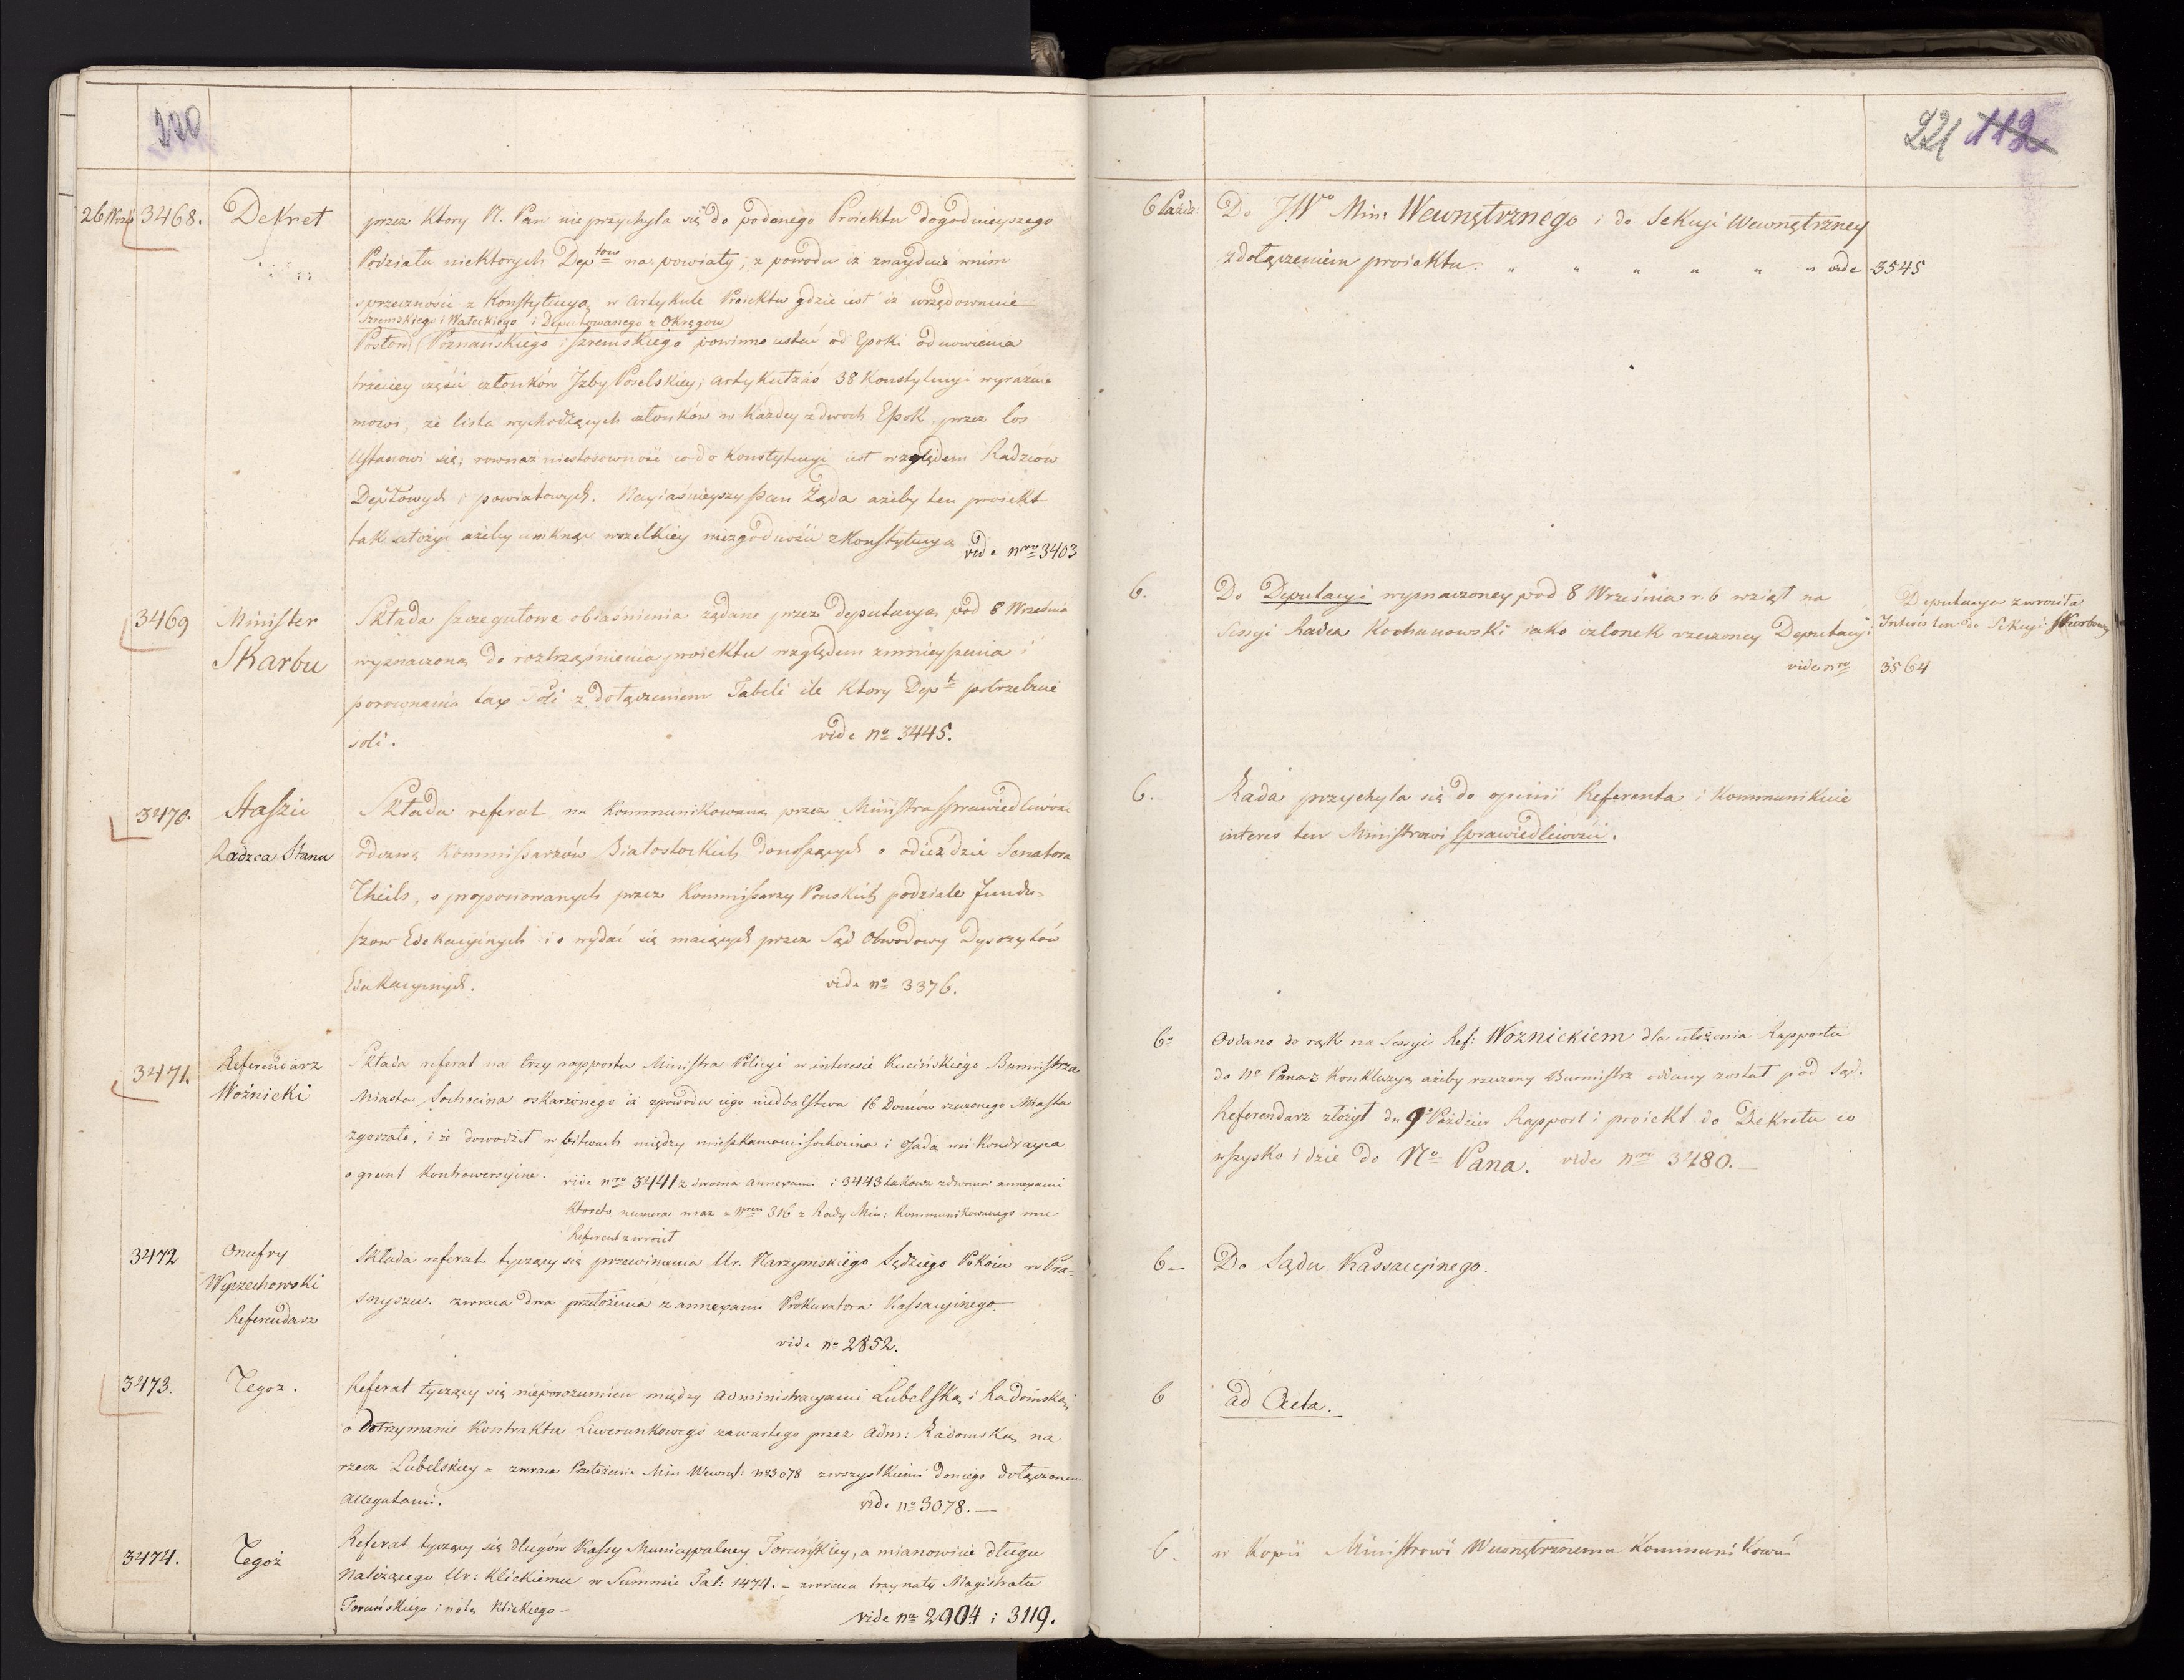 220
26 Wrześ 3468. Dekret
przez który N. Pan nie przychyla się do podanego Proiektu dogodnieyszego
Podziału niektorych Dep_tow_ na powiaty, z powodu iż znayduie wnim
sprzeczności z Konstytucyą w artykule Proiektu gdzie iest iż urzędowanie
Szremskiego i Wałeckiego i Deputowanego z Okręgow
Posłow Poznańskiego i Szremskiego powinno ustać od Epoki odnowienia
trzeciey części członków Izby Poselskiey; artykuł zaś 38 Konstytucyi wyraźnie
mowi, że lista wychodzących członków w każdey z dwoch Epok, przez los
Ustanowi się; rownaż niestosowność co do Konstytucyi iest względem Radzców
Dep_towych_ i powiatowych. Nayiaśnieyszy Pan Żąda ażeby ten proiekt
tak ułożyć ażeby uniknąć wszelkiey niezgodności z Konstytucyą vide nro 3403
3469 Minister
Skarbu
Składa szczegułowe obiaśnienia żądane przez deputacyą pod 8 Września
wyznaczoną do roztrząśnienia proiektu względem zmnieyszenia i
porownania tax Soli z dołączeniem Tabeli ile ktory Dept potrzebuie
soli. vide no 3445.
3470. Staszic
Radzca Stanu
Składa referat na kommunikowaną przez Ministra Sprawiedliwości
odezwę Kommissarzów Białostockich donoszących o odieździe Senatora
Theils, o proponowanych przez Kommissarzy Pruskich podziale fundu-
szow Edukacyinych i o wydać się maiących przez Sąd Obwodowy Dyspozytów
Edukacyinych. vide no 3376.
3471. Referendarz
Woźnicki
Składa referat na trzy rapporta Ministra Policyi w interesie Kucińskiego Burmistrza
Miasta Sochocina oskarżonego iż zpowodu iego niedbalstwa 16 Domów rzeczonego Miasta
zgorzało, i że dowodził w bitwach między mieszkańcami Sochocina i Osadą wsi Kondrayca
o grunt kontrowersyine. vide nro 3441 z dwoma annexami i 3443 takowz zdwoma annexami
Ktoreto numera wraz z Nrem 316 z Rady Min: kommunikowanego mu
Referent zwrócił
3472 Onufry
Wyczechowski
Referendarz
Składa referat tyczący się przewinienia Ur. Narzymskiego Sędziego Pokoiu w Pra=
snyszu. zwraca dwa przełożenia z annexami Prokuratora Kassacyinego
vide no 2852.
3473. Tegoż.
Referat tyczący się nieporozumień między administracyami Lubelską i Radomską
o dotrzymanie Kontraktu Liwerunkowego zawartego przez adm: Radomską na
rzecz Lubelskiey = zwraca Przełożenie Min Wewnęt: no 3078 zwszystkiemi doniego dołączonemi
allegatami. vide no 3078. —
3474. Tegoż
Referat tyczący się długów Kassy Municypalney Toruńskiey, a mianowicie długu
Należącego Ur: Klickiemu w Summie Tal: 1474. = zwraca trzy noty Magistratu
Toruńskiego i notę Klickiego — vide no 2904 i 3119.
221 112
6 Paźdz: Do JWo Min: Wewnętrznego i do Sekcyi Wewnętrzney
z dołączeniem proiektu. " " " " " " vide 3545
6. Do Deputacyi wyznaczoney pod 8 Września r. b wziął na
Sessyi Radca Kochanowski iako członek rzeczoney Deputacyi
vide nro 3564
Deputacya zwróciła
Interes ten do Sekcyi Skarbowey
6. Rada przychyla się do opinii Referenta i kommunikuie
interes ten Ministrowi Sprawiedliwości.
6= Oddano do rąk na Sessyi Ref: Woźnickiem dla ułożenia Rapportu
do No Pana z Konkluzyą ażeby rzeczony Burmistrz oddany został pod Sąd.
Referendarz złożył dn 9o Paździer Rapport i proiekt do Dekretu co
wszysko idzie do No Pana. vide nro 3480. —
6 — Do Sądu Kassacyinego.
6 ad Acta.
6. w kopii Ministrowi Wewnętrznemu kommunikować